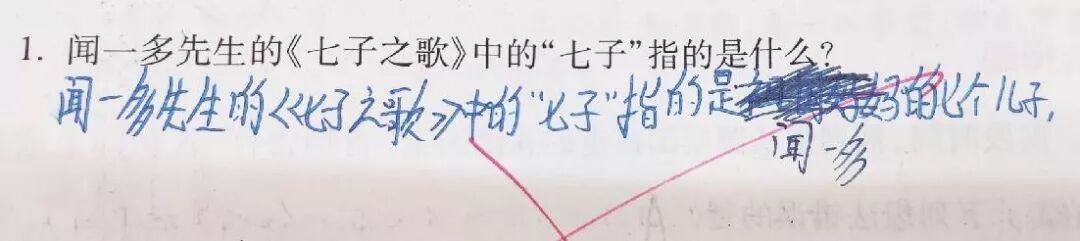 1. 闻一多先生的《七子之歌》中的“七子”指的是什么?
闻一多先生的《七子之歌》中的“七子”指的是妈的七个儿子,
闻一多